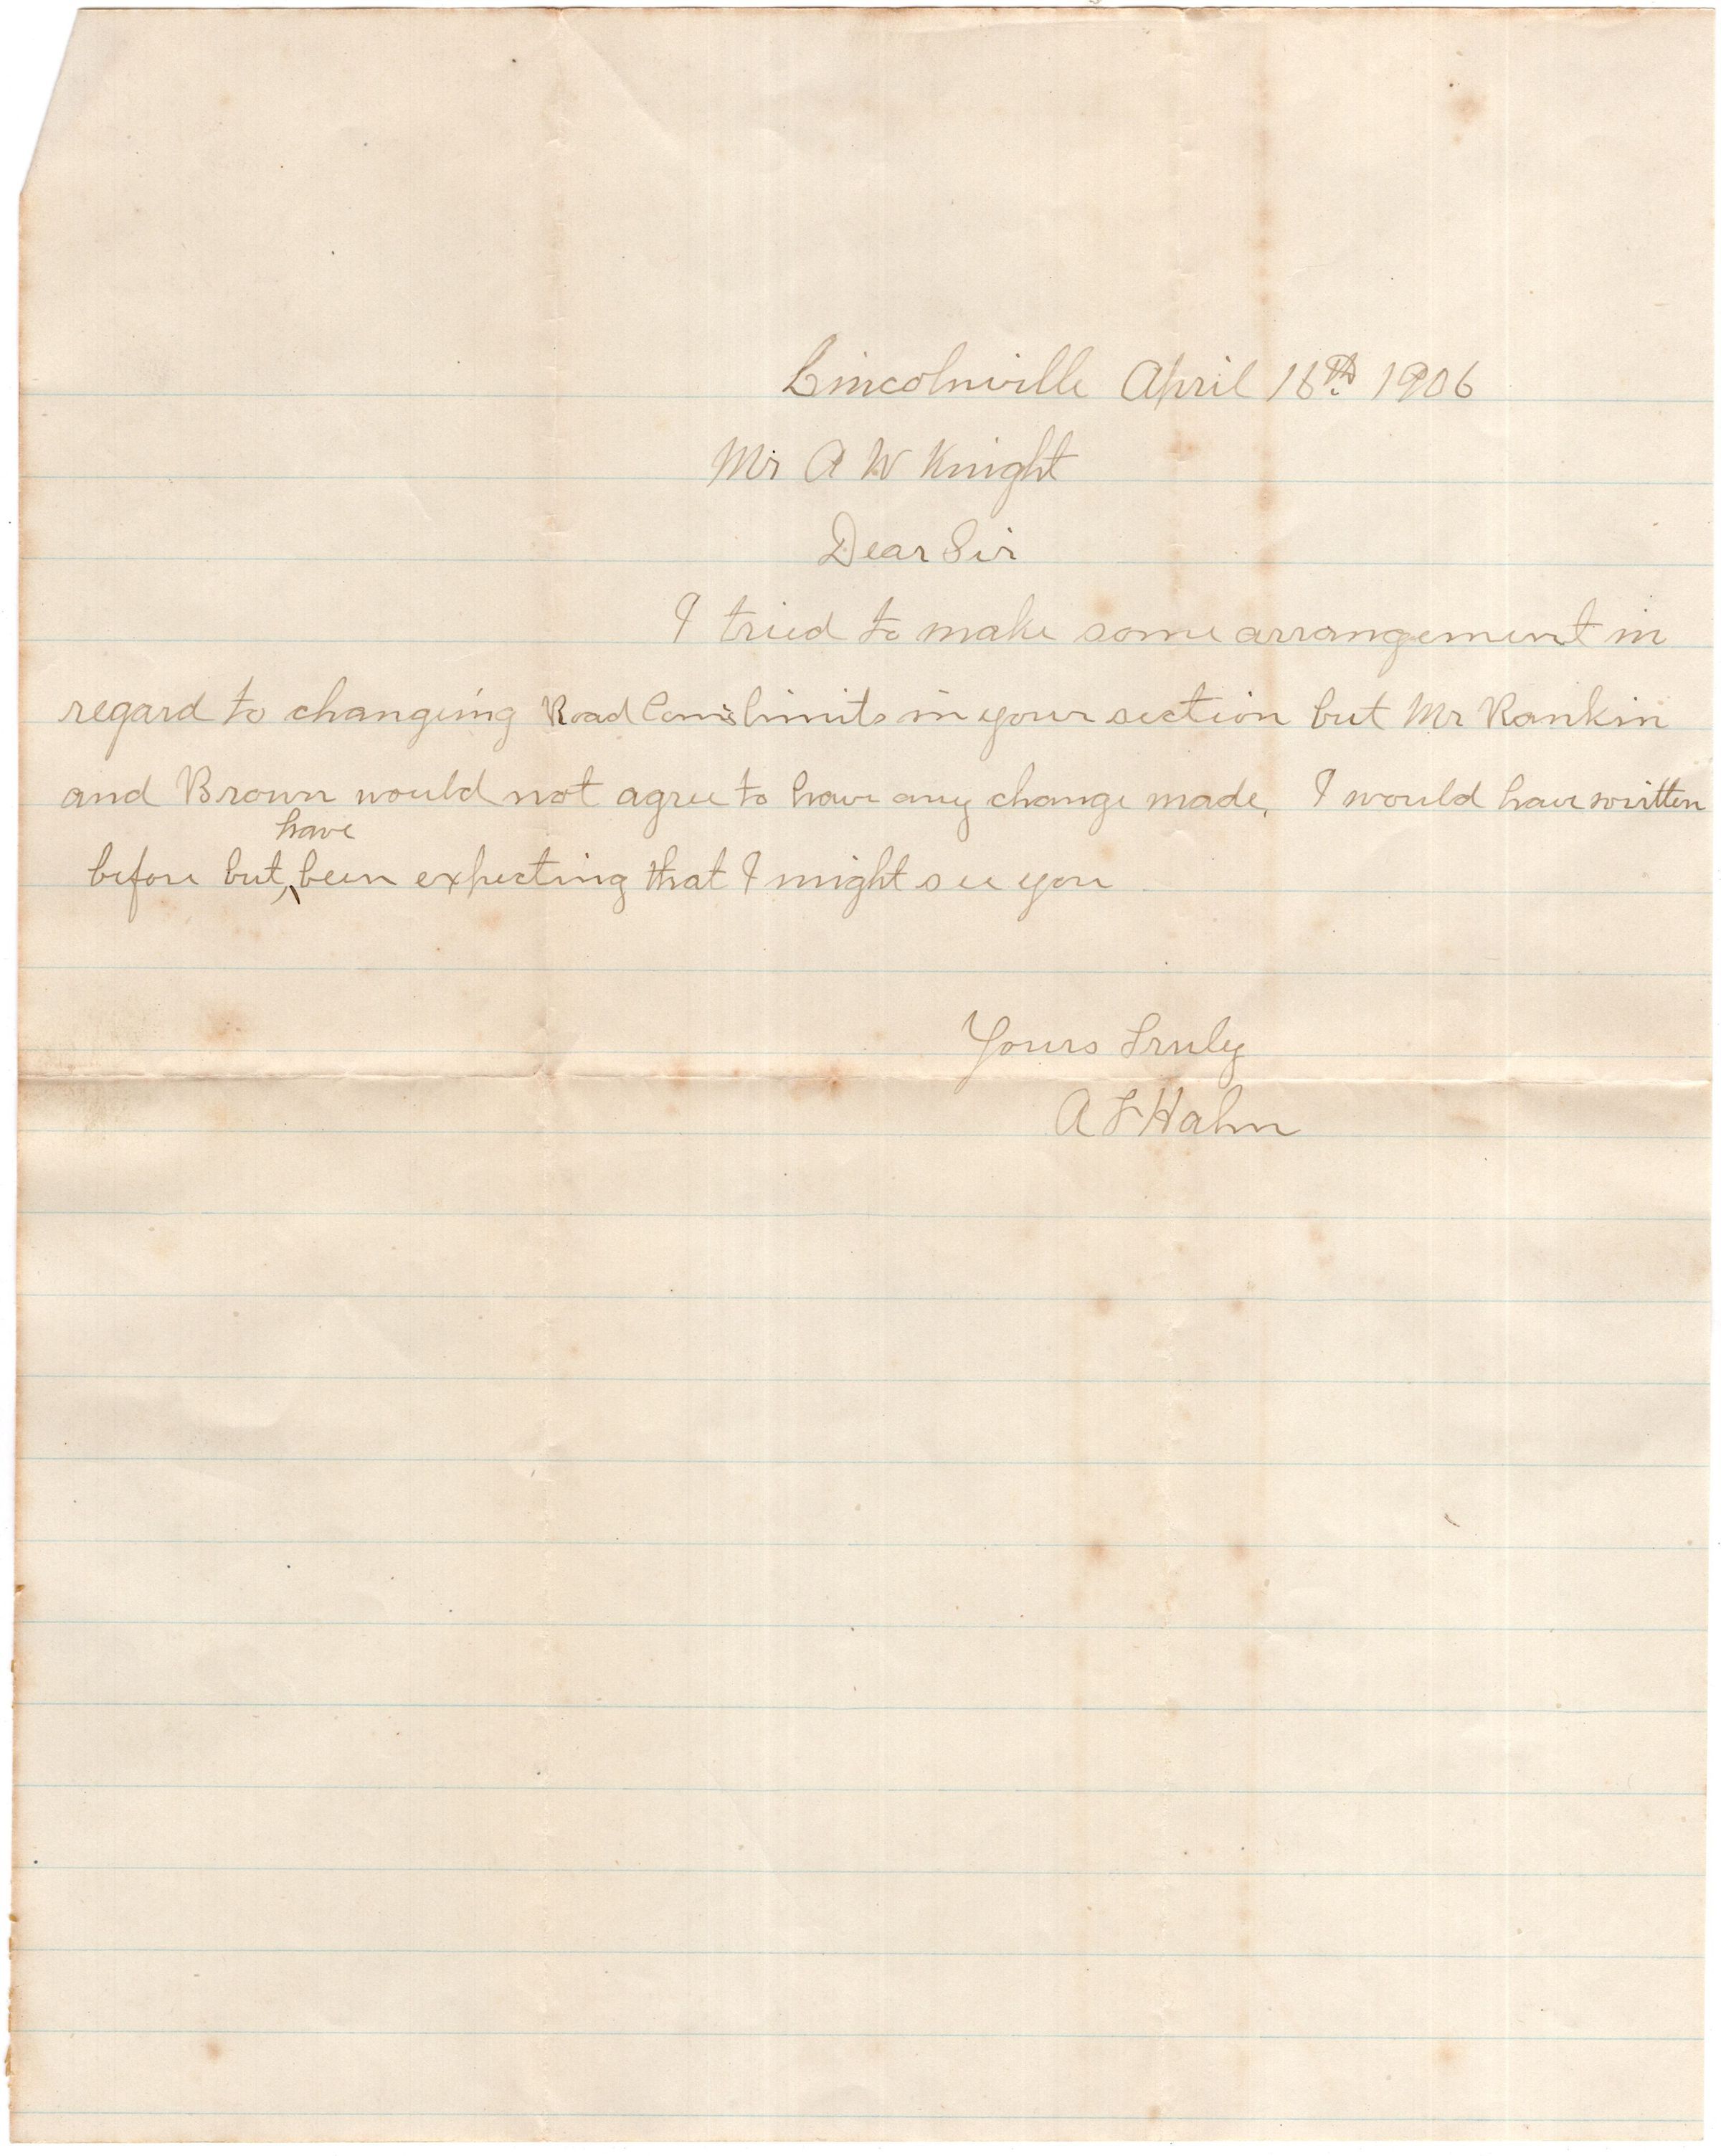 Lincolnville April 16th 1906
Mr A W Knight
Dear Sir
I tried to make some arrangement in
regard to changeing Road Coms limits in your section but Mr Rankin
and Brown would not agree to have any change made. I would have written
have
before but, been expecting that I might see you
Yours Truly
A F Hahn